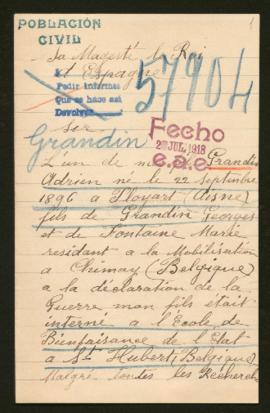 POBLACIÓN
CIVIL
Sa Majesté le Roi
d'Espagne
Pedir informes
Que se hace así
Devolver
57904
Sire
Grandin
Fecho
2 JUL. 1918
e.a.e.
L'un de mes fils Grandin
Adrien né le 22 Septembre
1896 à Lloyart (Aisne)
fils de Grandin Georges
et de Fontaine Marie
residant a la Mobilisation
a Chimay (Belgique)
a la déclaration de la
Guerre mon fils était
interné a l'Ecole de
Bienfaisance de l'Etat
a St Hubert (Belgique)
Malgré toutes les Recherch